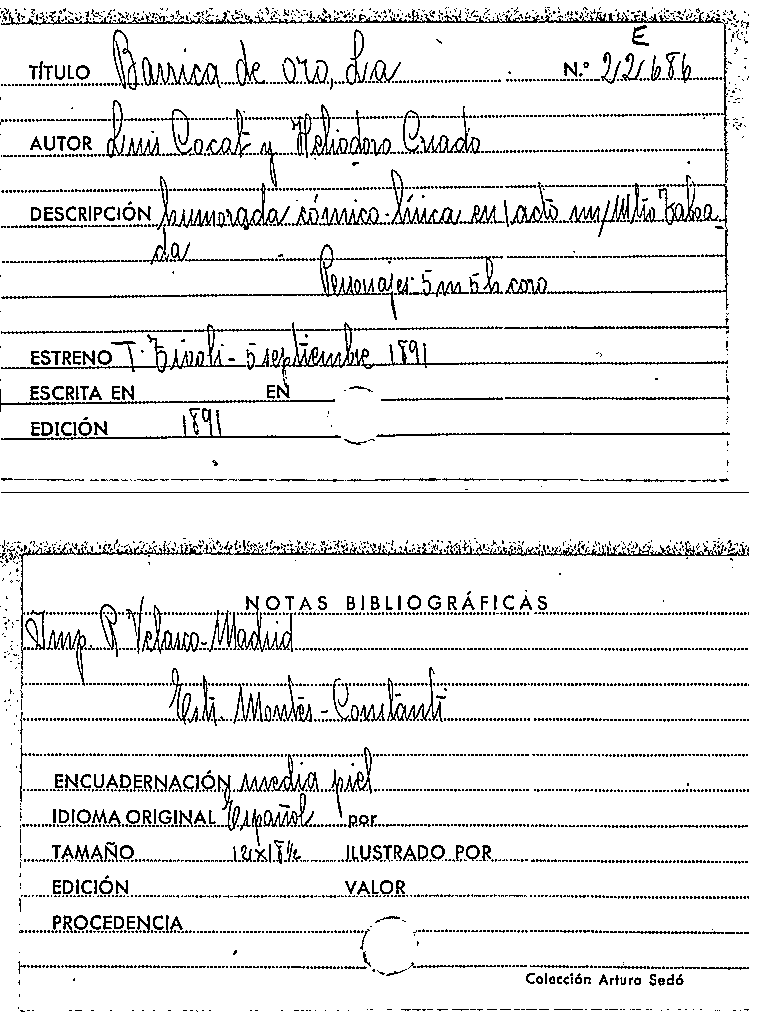 E
TÍTULO Barrica de oro, La N.º 22686
AUTOR Luis Cocat y Heliodoro Criado
DESCRIPCIÓN humorada cómico-lírica en 1 acto m/Mtro Taboa-
da
Personajes: 5 m 5 h coro
ESTRENO T. Tívoli - 5 septiembre 1891
ESCRITA EN EN
EDICIÓN 1891
NOTAS BIBLIOGRÁFICAS
Imp. R Velasco-Madrid
Estr. Montes-Constantí
ENCUADERNACIÓN media piel
IDIOMA ORIGINAL Español por
TAMAÑO ILUSTRADO POR
EDICIÓN VALOR
PROCEDENCIA
Colección Arturo Sedó